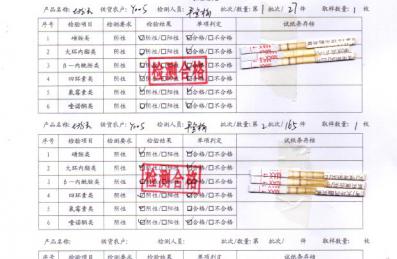 产品名称: 供货农户: 检测人员: 批次/数量:第 1 批次/ 27 件 取样数量: 1 枚
序号 检验项目 检测要求 检验结果 单项判定 试纸条存样
1 磺胺类 阴性 ☑阴性/□阳性 ☑合格/□不合格
2 大环内酯类 阴性 ☑阴性/□阳性 ☑合格/□不合格
3 β-内酰胺类 阴性 ☑阴性/□阳性 ☑合格/□不合格
4 四环素类 阴性 ☑阴性/□阳性 ☑合格/□不合格
5 氟霉素类 阴性 ☑阴性/□阳性 ☑合格/□不合格
6 喹诺酮类 阴性 ☑阴性/□阳性 ☑合格/□不合格
检测合格
产品名称: 供货农户: 检测人员: 批次/数量:第 2 批次/ 165 件 取样数量: 1 枚
序号 检验项目 检测要求 检验结果 单项判定 试纸条存样
1 磺胺类 阴性 ☑阴性/□阳性 ☑合格/□不合格
2 大环内酯类 阴性 ☑阴性/□阳性 ☑合格/□不合格
3 β-内酰胺类 阴性 ☑阴性/□阳性 ☑合格/□不合格
4 四环素类 阴性 ☑阴性/□阳性 ☑合格/□不合格
5 氟霉素类 阴性 ☑阴性/□阳性 ☑合格/□不合格
6 喹诺酮类 阴性 ☑阴性/□阳性 ☑合格/□不合格
检测合格
产品名称: 供货农户: 检测人员: 批次/数量:第 批次/ 件 取样数量: 枚
序号 检验项目 检测要求 检验结果 单项判定 试纸条存样